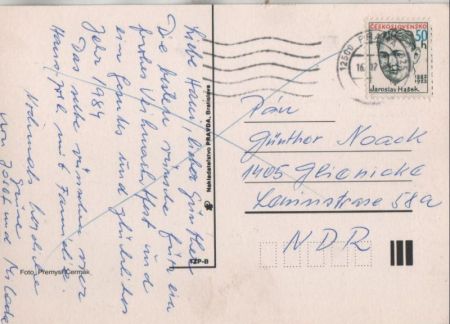 Liebe Hanni, lieber Günther
Die besten Wünsche für ein
frohes Weihnachtsfest und
ein gesundes und glückliches
Jahr 1984
Das selbe wünschen wir
Hans-
mit Familie.
Nochmals herzliche
Grüße
von
und
Foto: Přemysl Čermák
TZP-B
Nakladatelstvo PRAVDA, Bratislava
ČESKOSLOVENSKO
50 h
Jaroslav Hašek
1883
1923
12500 PRAHA
16.
Pan
Günther Noack
1405 Glienicke
Lessingstrasse 58a
NDR